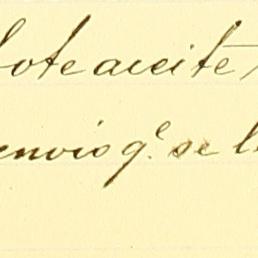 bote aceite
envio qe. se l